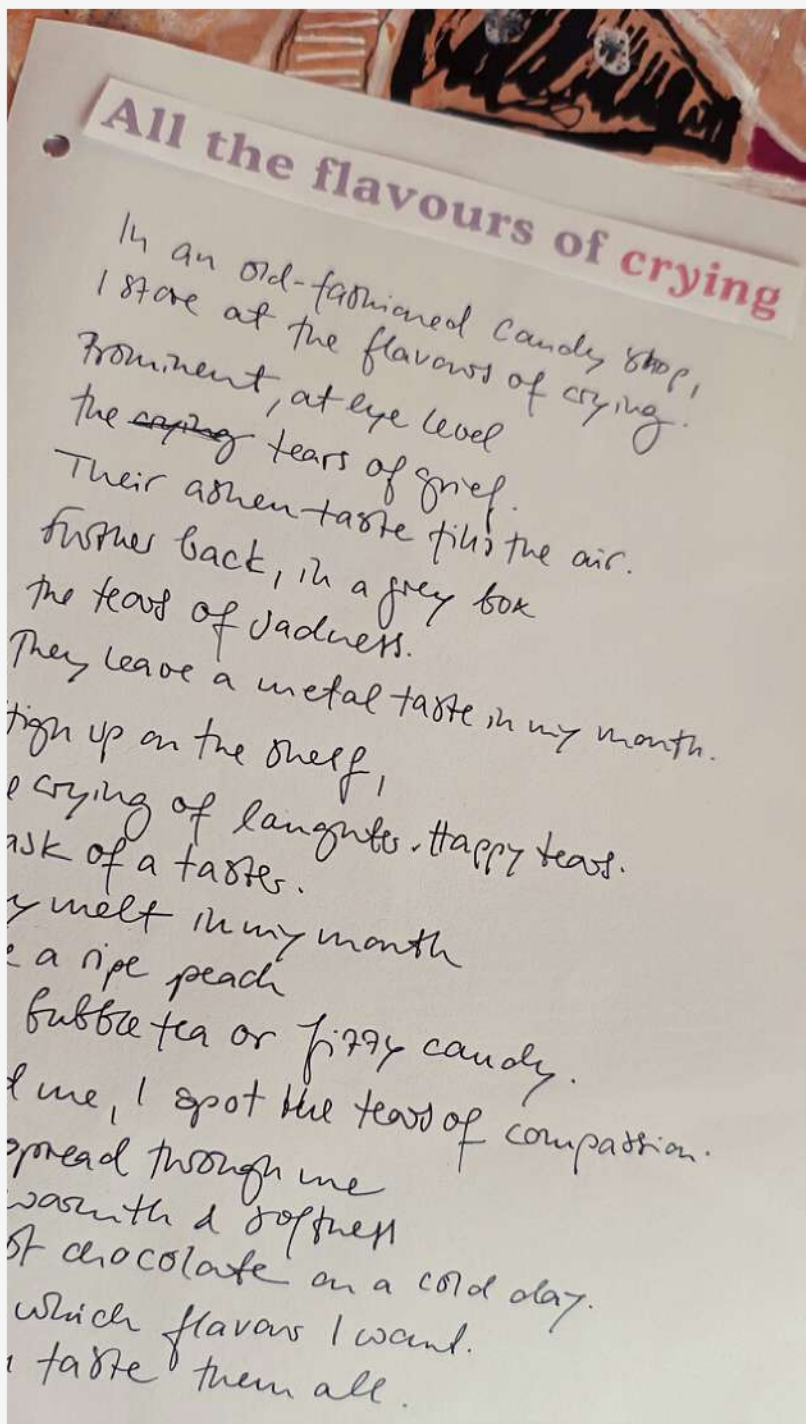 All the flavours of crying
In an old-fashioned candy shop,
I stare at the flavours of crying.
Prominent, at eye level
the crying tears of grief.
Their ashen taste fills the air.
Further back, in a grey box
the tears of sadness.
They leave a metal taste in my mouth.
High up on the shelf,
crying of laughter. Happy tears.
ask of a taster.
melt in my mouth
a ripe peach
bubble tea or fizzy candy.
me, I spot the tears of compassion.
spread through me
warmth & softness
chocolate on a cold day.
which flavour I want.
taste them all.